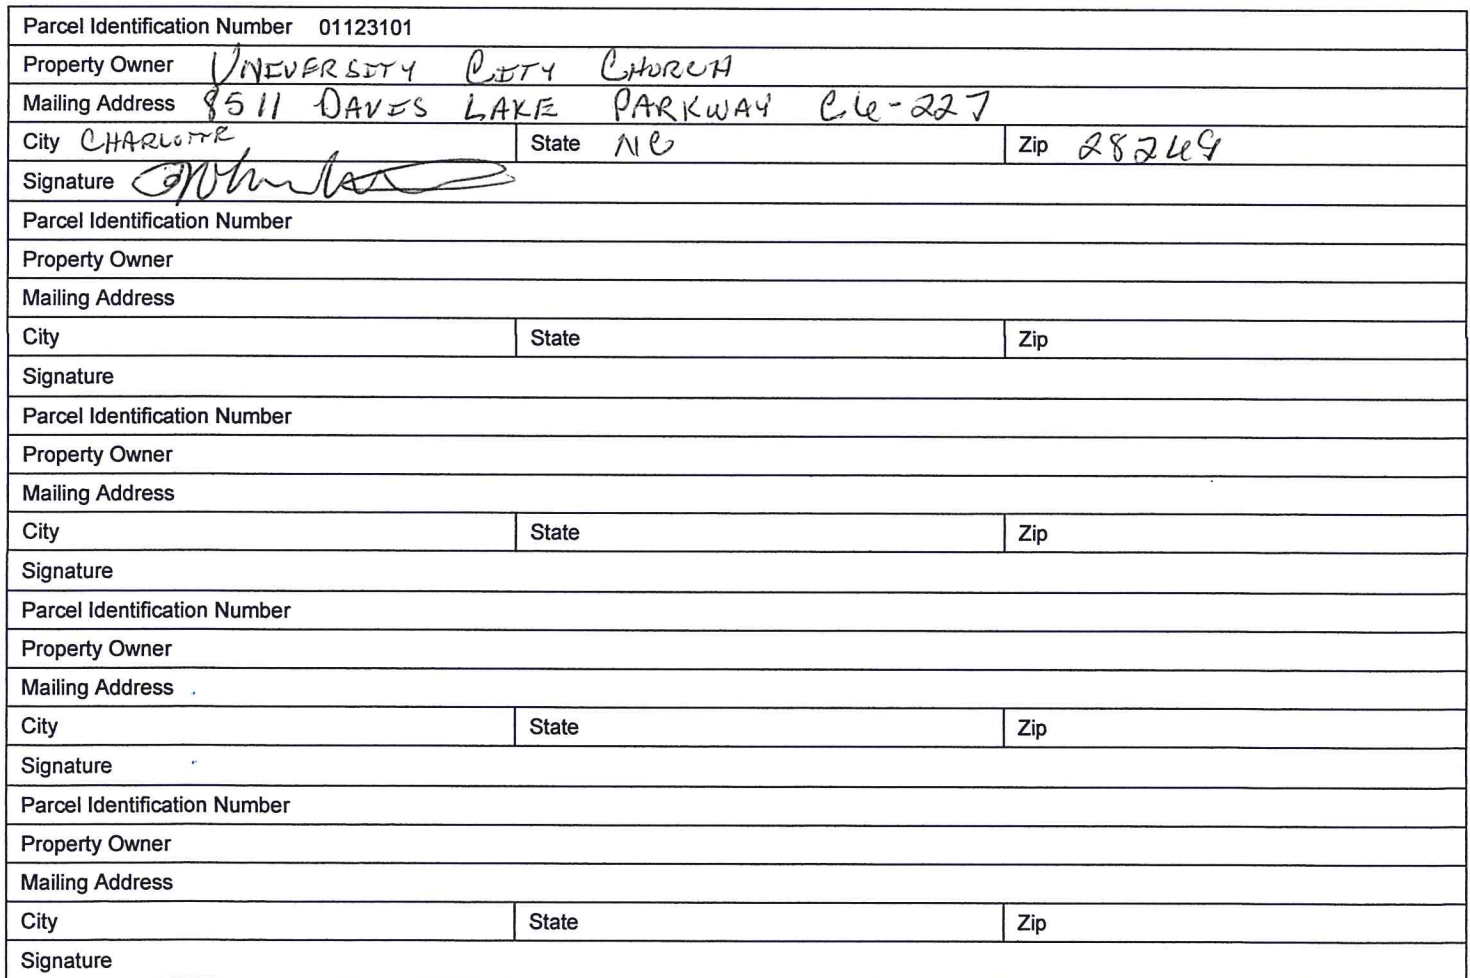 Parcel Identification Number 01123101
Property Owner UNIVERSITY CITY CHURCH
Mailing Address 8511 DAVIS LAKE PARKWAY C6-227
City CHARLOTTE State NC Zip 28269
Signature
Parcel Identification Number
Property Owner
Mailing Address
City State Zip
Signature
Parcel Identification Number
Property Owner
Mailing Address
City State Zip
Signature
Parcel Identification Number
Property Owner
Mailing Address
City State Zip
Signature
Parcel Identification Number
Property Owner
Mailing Address
City State Zip
Signature